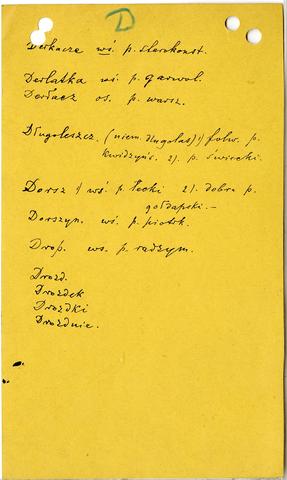 D
Derkacze wś p. starokonst.
Derlatka wś p. garwol.
Derlacz os. p. warsz.
Długoleszcz. (niem. dlugolas) 1) folw. p.
kwidzyń. 2). p. świecki.
Dorsz 1) wś. p. łecki 2). dobra p.
gołdapski.-
Dorszyn. wś. p. piotrk.
Drop. ws. p. radzym.
Drozd.
Drozdek
Drozdki
Drozdnie.